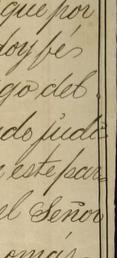 que por
doy fé
go del
do judi-
este par-
el Señor